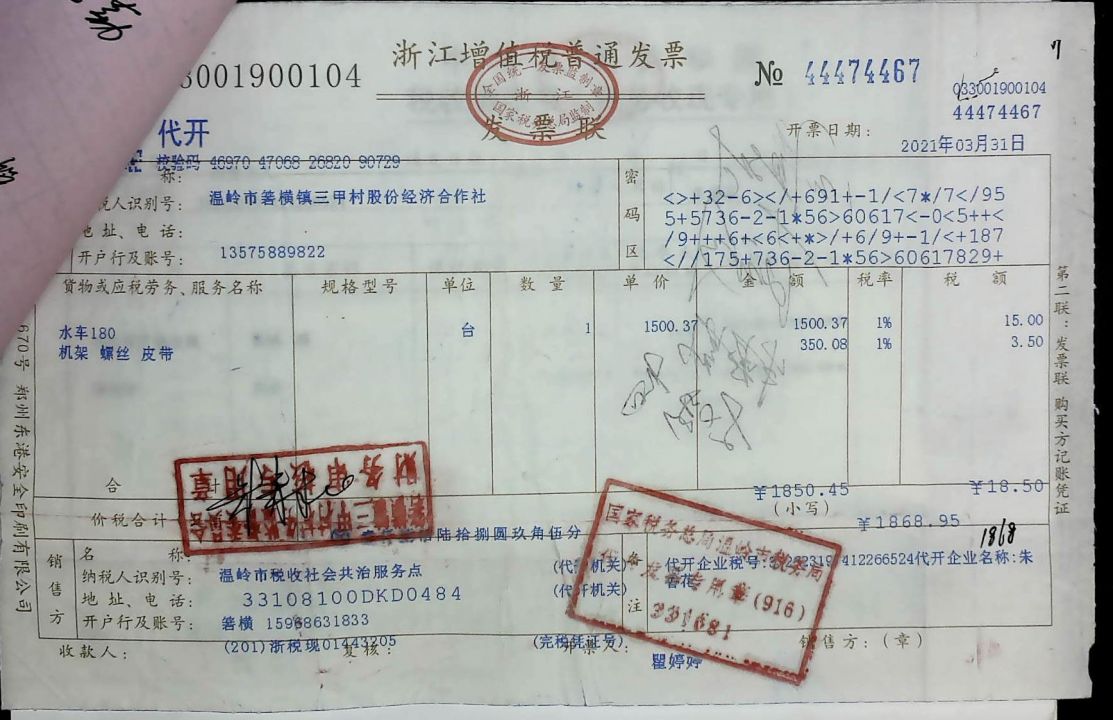 浙江增值税普通发票
3001900104
全国统一发票监制章
浙江
国家税务总局监制
发票联
№ 44474467
033001900104
44474467
7
代开
开票日期: 2021年03月31日
校验码 46970 47068 26820 90729
称: 温岭市箬横镇三甲村股份经济合作社
税人识别号:
地址、电话:
开户行及账号: 13575889822
密码区
<>+32-6></+691+-1/<7*/7</95
5+5736-2-1*56>60617<-0<5++<
/9+++6+<6<+*>/+6/9+-1/<+187
<//175+736-2-1*56>60617829+
货物或应税劳务、服务名称 规格型号 单位 数量 单价 金额 税率 税额
水车180 台 1 1500.37 1500.37 1% 15.00
机架 螺丝 皮带 350.08 1% 3.50
合 ¥1850.45 ¥18.50
价税合计 陆拾捌圆玖角伍分 (小写) ¥1868.95
1868
财务审核专用章
销售方
名称: 温岭市税收社会共治服务点 (代开机关)
纳税人识别号: 33108100DKD0484 (代开机关)
地址、电话: 箬横 15968631833
开户行及账号: (201)浙税现01443205 (完税凭证号)
备注
代开企业税号: 代开企业名称:朱
国家税务总局温岭市税务局
代开发票专用章(916)
331081
收款人: 复核: 开票人: 瞿婷婷 销售方:(章)
第二联:发票联 购买方记账凭证
670号 郑州东港安全印刷有限公司